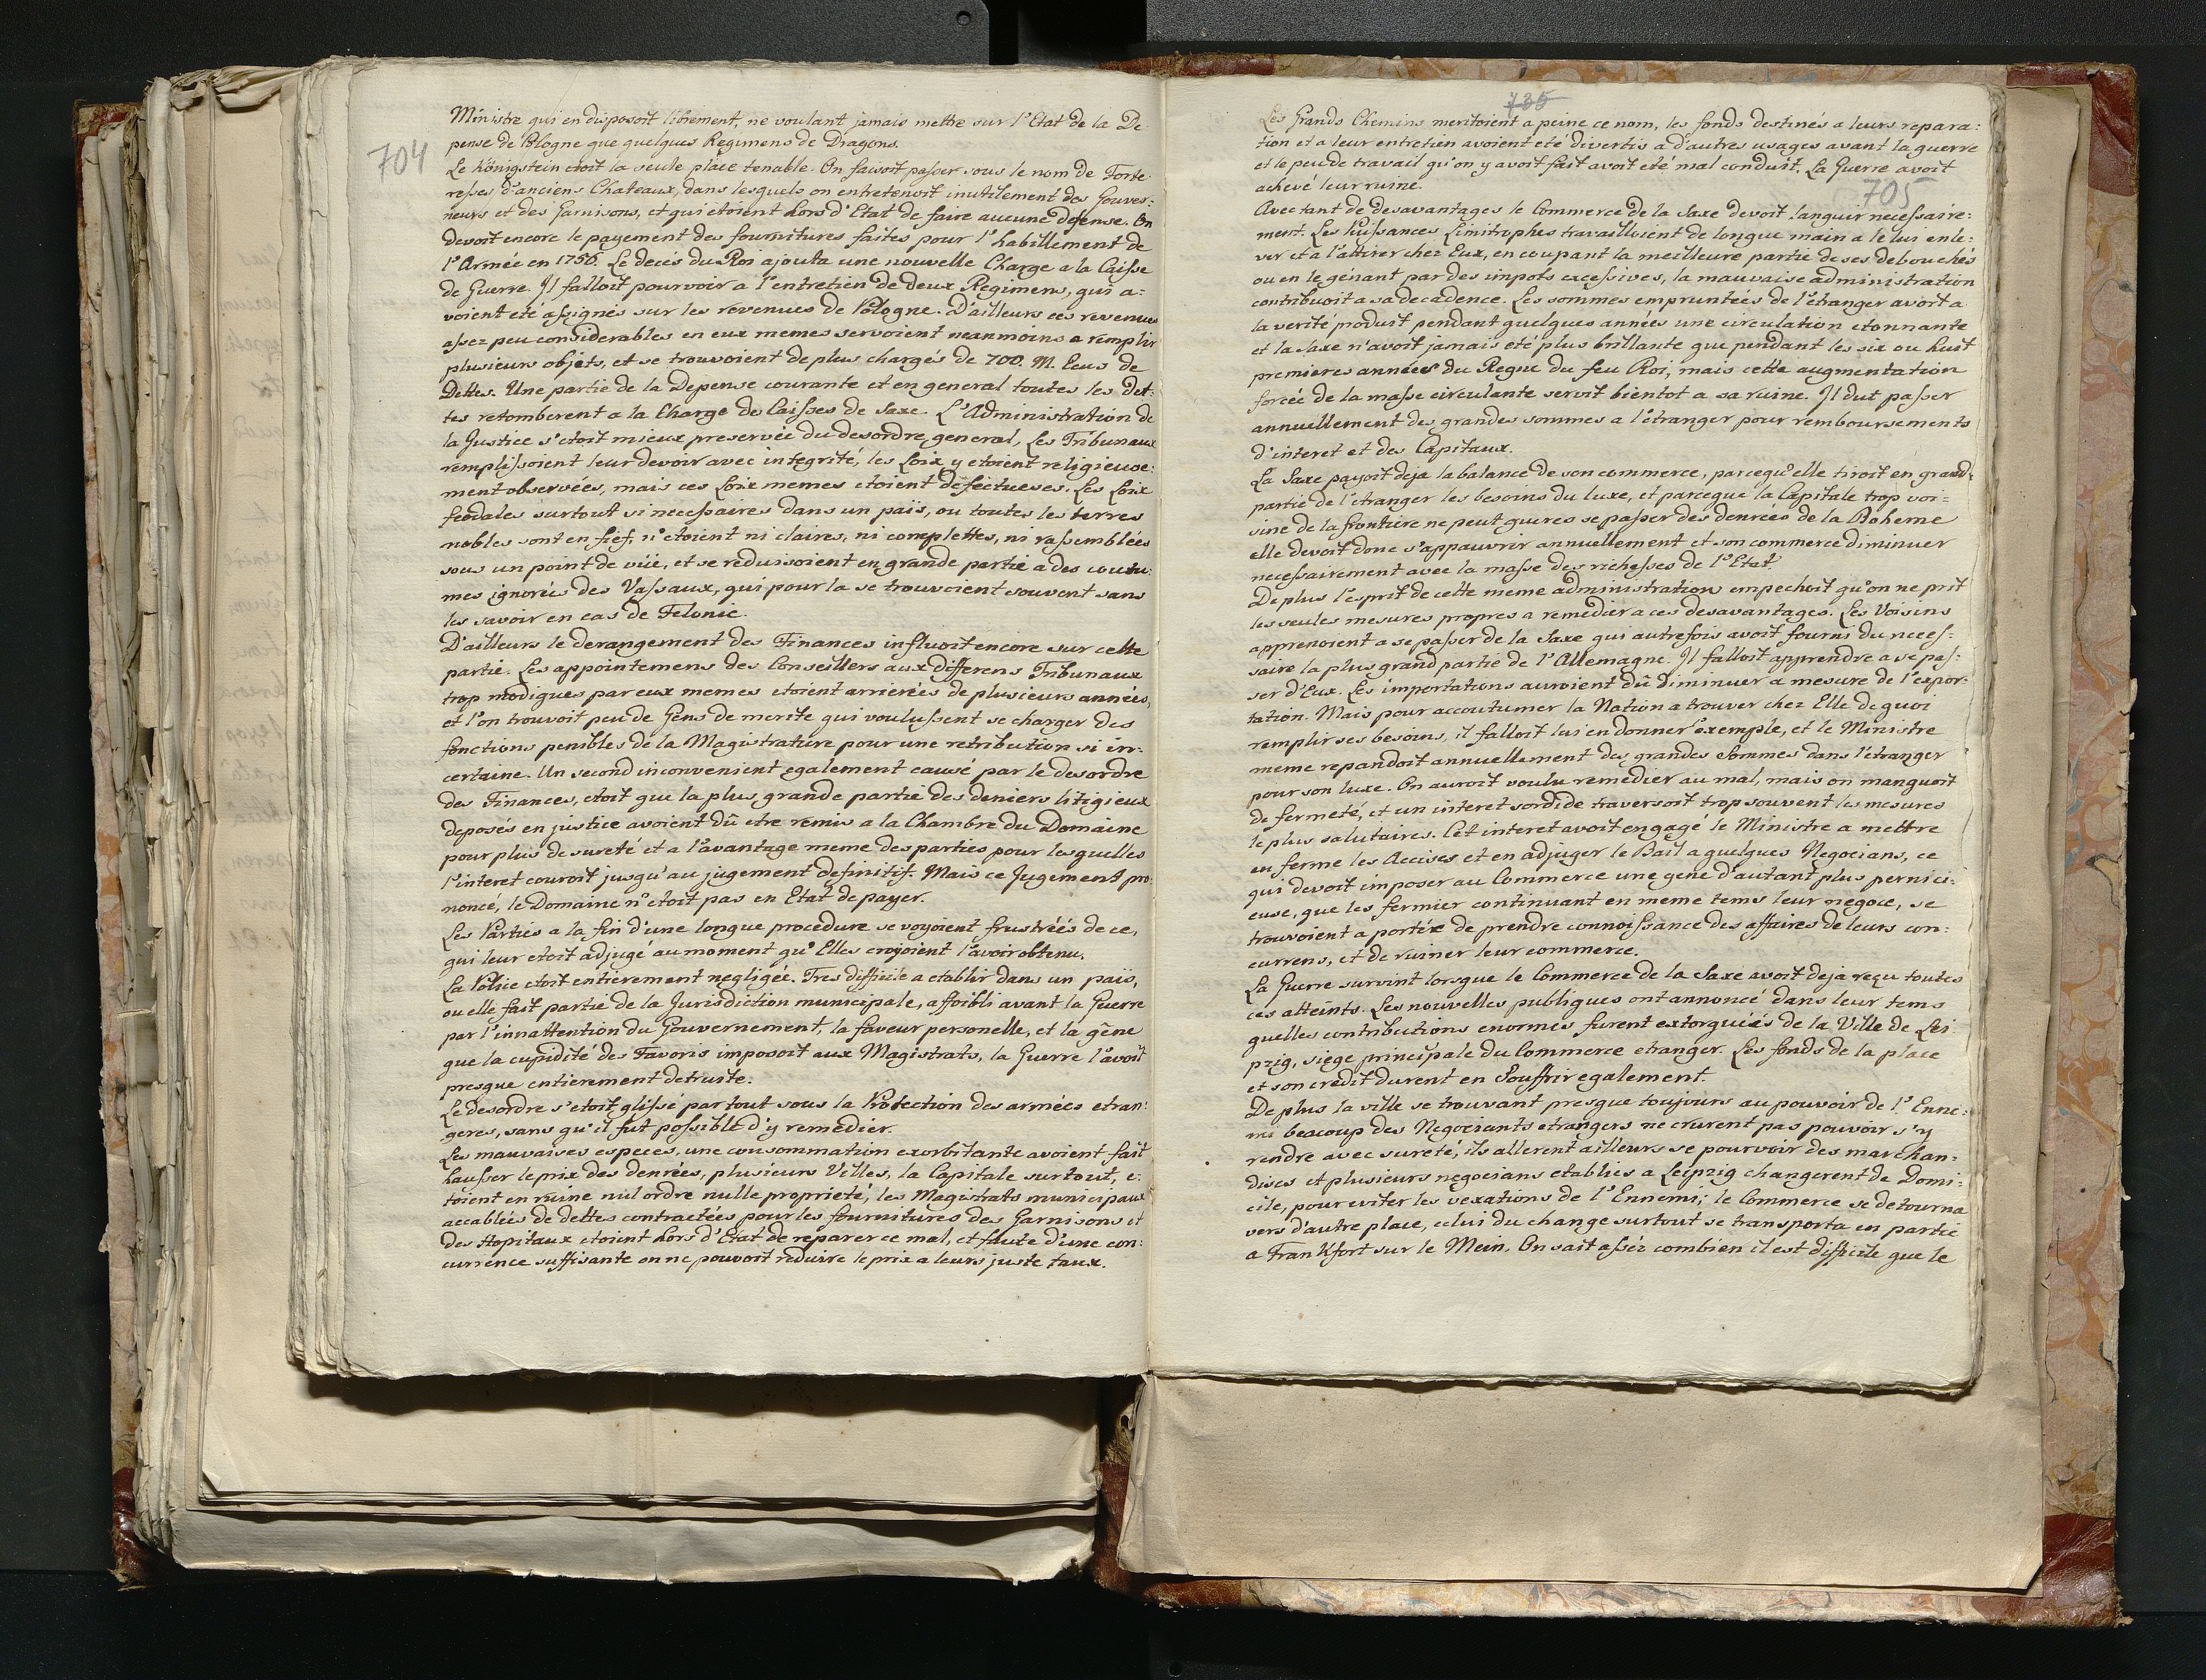 704
Ministre qui en disposoit librement, ne voulant jamais mettre sur l'Etat de la De
pense de Pologne que quelques Regimens de Dragons.
Le Königstein etoit la seule place tenable. On faisoit passer sous le nom de Forte
resses d'anciens Chateaux, dans lesquels on entretenoit inutilement des Gouver:
neurs et des Garnisons, et qui etoient hors d'Etat de faire aucune defense. On
devoit encore le payement des fournitures faites pour l'habillement de
l'Armée en 1756. Le decés du Roi ajouta une nouvelle Charge a la Caisse
de Guerre. Il falloit pourvoir a l'entretien de deux Regimens, qui a=
voient eté assignés sur les revenues de Pologne. D'ailleurs ces revenues
assez peu considerables en eux memes servoient neanmoins a remplir
plusieurs objets, et se trouvoient de plus chargés de 700. M. Ecus de
Dettes. Une partie de la Depense courante et en general toutes les det:
tes retomberent a la Charge de Caisses de Saxe. L'Administration de
la Justice s'etoit mieux preservée du desordre general, Les Tribunaux
remplissoient leur devoir avec integrité, les Loix y etoient religieuse:
ment observées, mais ces Loix memes etoient defectueses. Les Loix
feodales surtout si necessaires dans un païs, ou toutes les terres
nobles sont en fief, n'etoient ni claires, ni complettes, ni rassemblées
sous un point de vüe, et se reduisoient en grande partie a des coutu:
mes ignorés des Vassaux, qui pour la se trouvoient souvent sans
les savoir en cas de Felonie.
D'ailleurs le derangement des Finances influoit encore sur cette
partie. Les appointemens des Conseillers aux differens Tribunaux
trop modiques par eux memes etoient arrierées de plusieurs années,
et l'on trouvoit peu de Gens de merite qui voulussent se charger des
fonctions penibles de la Magistrature pour une retribution si in:
certaine. Un second inconvenient egalement causé par le desordre
des Finances, etoit que la plus grande partie des deniers litigieux
deposés en justice avoient dû etre remis a la Chambre du Domaine
pour plus de sureté et a l'avantage meme des parties pour lesquelles
l'interet couroit jusqu'au jugement definitif. Mais ce Jugement pro:
noncé, le Domaine n'etoit pas en Etat de payer.
Les Parties a la fin d'une longue procedure se voyoient frustréés de ce,
qui leur etoit adjugé au moment qu'Elles croyoient l'avoir obtenu.
La Police etoit entierement negligée. Tres difficile a etablir dans un païs,
ou elle fait partie de la Jurisdiction municipale, affoibli avant la Guerre
par l'innattention du Gouvernement, la faveur personelle, et la gêne
que la cupidité des Favoris imposoit aux Magistrats, la Guerre l'avoit
presque entierement detruite.
Le desordre s'etoit glissé par tout sous la Protection des armées etran:
geres, sans qu'il fut possible d'y remedier.
Les mauvaises especes, une consommation exorbitante avoient fait
hausser le prix des denrées, plusieurs Villes, la Capitale sur tout, e:
toient en ruine nul ordre nulle proprieté, les Magistrats municipaux
accablés de dettes contractées pour les fournitures des Garnisons et
des Hopitaux etoient hors d'Etat de reparer ce mal, et faute d'une con:
currence suffisante on ne pouvoit reduire le prix a leurs juste taux.
735
705
Les Grands Chemins meritoient a peine ce nom, les fonds destinés a leurs repara:
tion et a leur entretien avoient eté divertis a d'autres usages avant la guerre
et le peu de travail qu'on y avoit fait avoit eté mal conduit. La Guerre avoit
achevé leur ruine.
Avec tant de desavantages le Commerce de la Saxe devoit languir necessaire:
ment. Les Puissances Limitrophes travailloient de longue main a le lui enle:
ver et a l'attirer chez Eux, en coupant la meilleure partie de ses debouchés
ou en le gênant par des impots excessives, la mauvaise administration
contribuoit a sa decadence. Les sommes empruntées de l'etranger avoit a
la verité produit pendant quelques années une circulation etonnante
et la Saxe n'avoit jamais eté plus brillante que pendant les six ou huit
premieres années du Regne du feu Roi, mais cette augmentation
forcée de la masse circulante servit bientot a sa ruine. Il dut passer
annuellement des grandes sommes a l'etranger pour remboursements
d'interet et des Capitaux.
La Saxe payoit deja la balance de son commerce, parcequ'elle tiroit en grand
partie de l'etranger les besoins du luxe, et parceque la Capitale trop voi=
sine de la frontiere ne peut gueres se passer des denrées de la Boheme
elle devoit donc s'appauvrir annuellement et son commerce diminuer
necessairement avec la masse des richesses de l'Etat
De plus l'esprit de cette meme administration empechoit qu'on ne prit
les seules mesures propres a remedier a ces desavantages. Les Voisins
apprenoient a se passer de la Saxe qui autrefois avoit fourni du neces=
saire la plus grand partie de l'Allemagne. Il falloit apprendre a se pas=
ser d'Eux. Les importations auroient dû diminuer a mesure de l'expor:
tation. Mais pour accoutumer la Nation a trouver chez Elle de quoi
remplir ses besoins, il falloit lui en donner l'exemple, et le Ministre
meme repandoit annuellement des grandes Sommes dans l'etranger
pour son luxe. On auroit voulu remedier au mal, mais on manquoit
de fermeté, et un interet sordide traversoit trop souvent les mesures
le plus salutaires. Cet interet avoit engagé le Ministre a mettre
en ferme les Accises et en adjuger le Bail a quelques Negocians, ce
qui devoit imposer au Commerce une gene d'autant plus pernici=
euse, que les fermier continuant en meme tems leur negoce, se
trouvoient a portée de prendre connoissance des affaires de leurs con:
currens, et de ruiner leur commerce.
La Guerre survint lorsque le Commerce de la Saxe avoit deja reçu toutes
ces atteints. Les nouvelles publiques ont annoncé dans leur tems
quelles contributions enormes furent extorquéés de la Ville de Lei
pzig, siege principale du Commerce etranger. Les fonds de la place
et son credit durent en Souffrir egalement.
De plus la ville se trouvant presque toujours au pouvoir de l'Enne:
mi beacoup des Negociants etrangers ne crurent pas pouvoir s'y
rendre avec sureté, ils allerent ailleurs se pourvoir des marchan=
dises et plusieurs negocians etablies a Leipzig changerent de Domi:
cile, pour eviter les vexations de l'Ennemi; le Commerce se detourna
vers d'autre place, celui du change surtout se transporta en partie
a Frankfort sur le Mein. On sait assés combien il est difficile que le